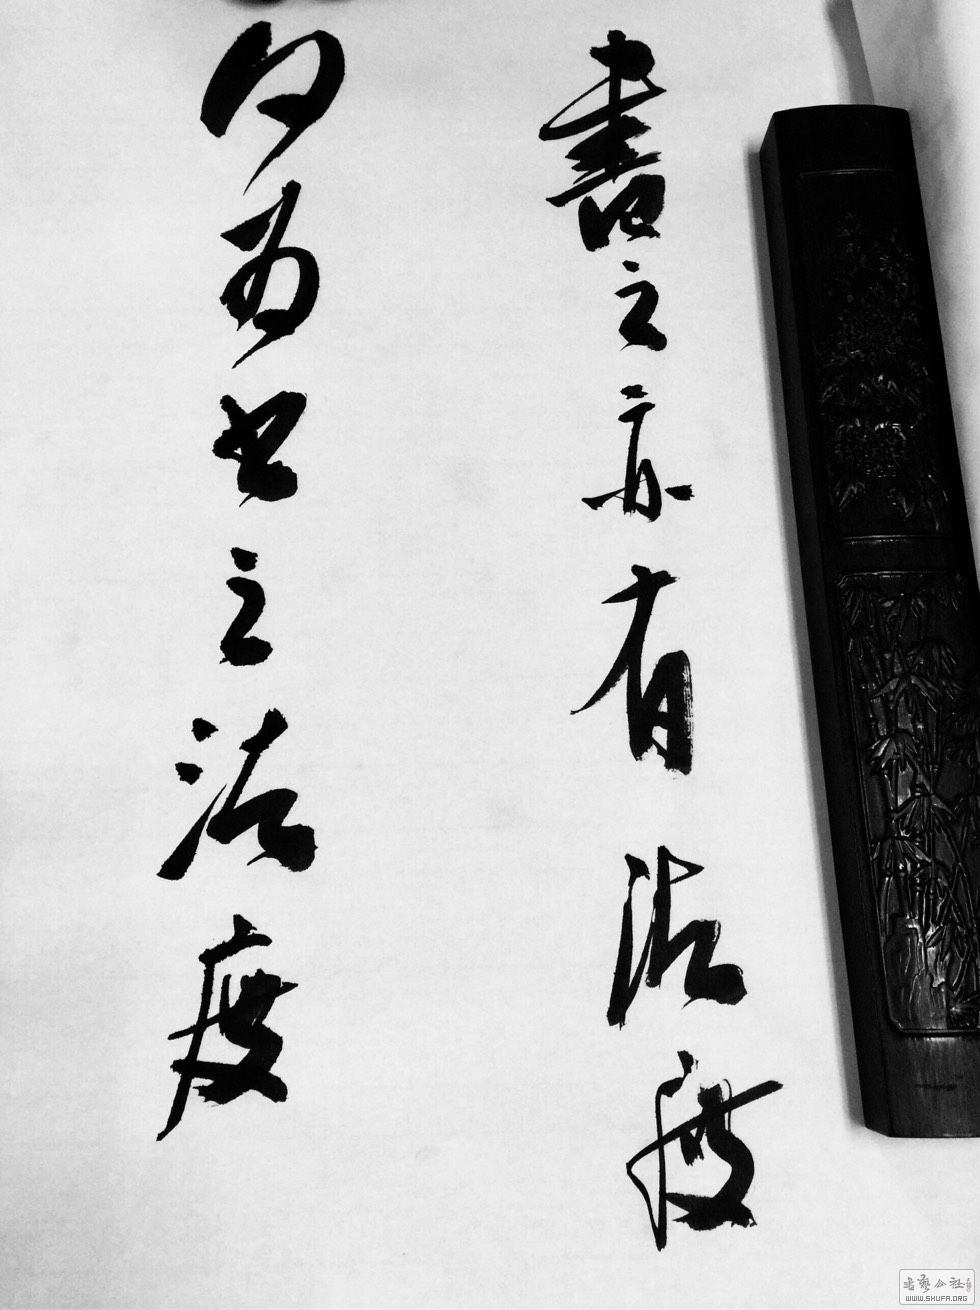 書之亦有法度
何為书之法度
書藝公社
WWW.SHUFA.ORG